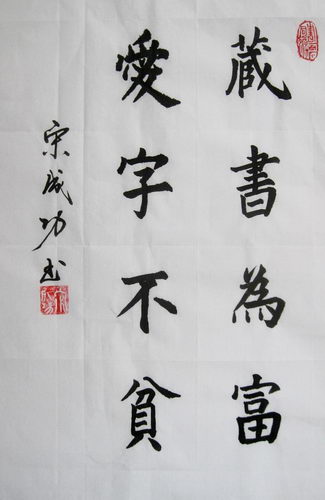 藏書為富
愛字不貧
宋成功书